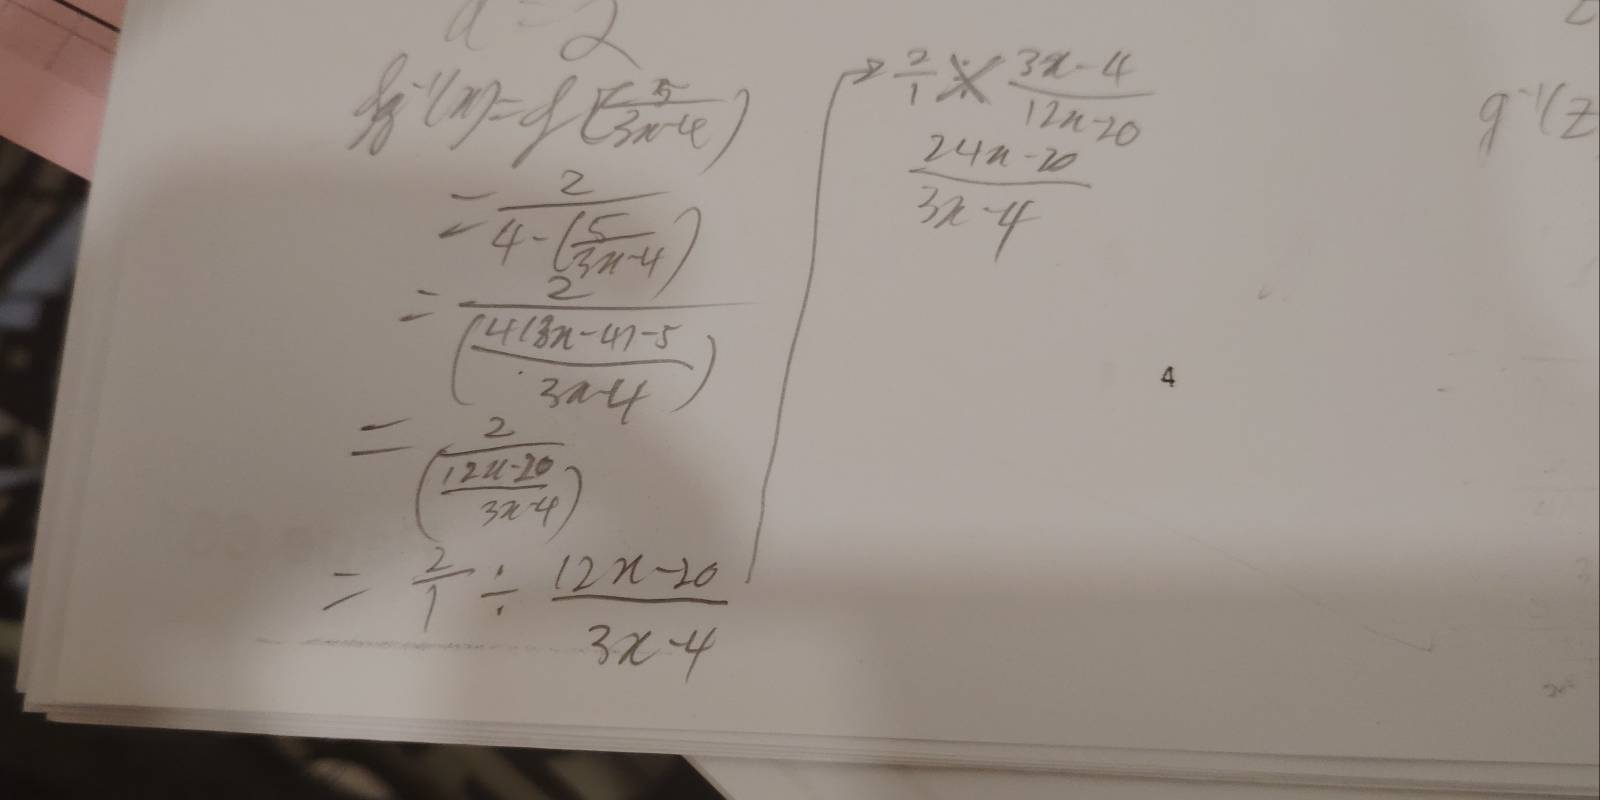 a = 2
fg⁻¹(x) = f(5/(3x-4))
= 2/(4-(5/(3x-4)))
= 2/((4(3x-4)-5)/(3x-4))
= 2/((12x-20)/(3x-4))
= 2/1 ÷ (12x-20)/(3x-4)
→ 2/1 × (3x-4)/(12x-20)
(24x-20)/(3x-4)
g⁻¹(
4